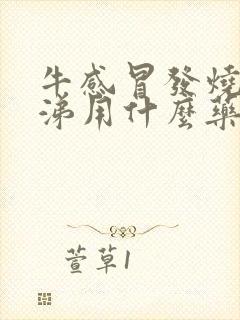 牛感冒發燒
涕用什麼藥
萱草1